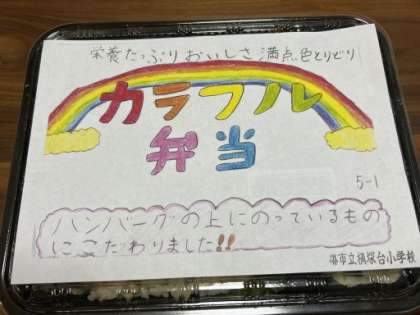 栄養たっぷりおいしさ満点色とりどり
カラフル
弁当
5-1
ハンバーグの上にのっているもの
にこだわりました!!
堺市立槇塚台小学校